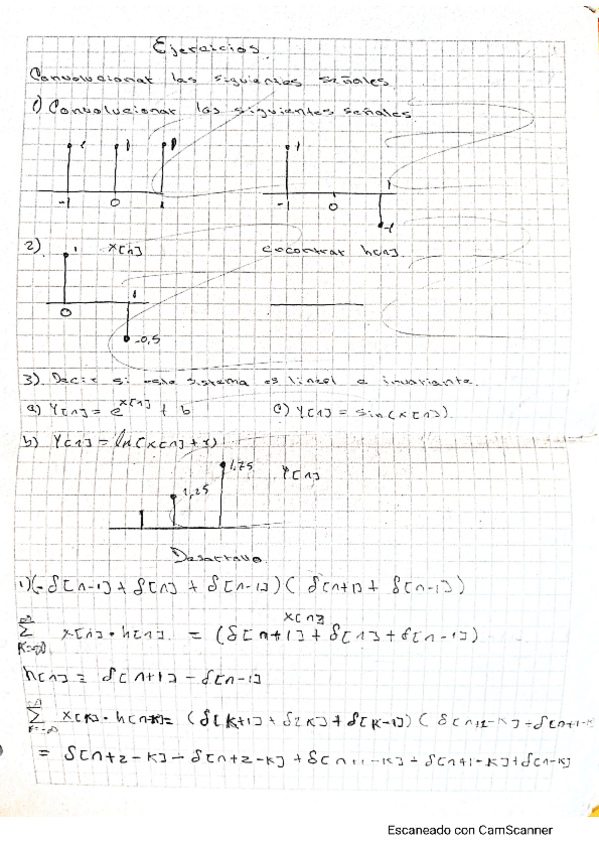 Ejercicios.
Convolucionar las siguientes señales
1) Convolucionar las siguientes señales.
1 1 1 1
-1 0 1 -1 0 1
-1
2). 1 x[n] encontrar h[n].
0 1
-0,5
3). Decir si este sistema es lineal e invariante.
a) Y[n] = e^x[n] + b c) Y[n] = sin(x[n]).
b) Y[n] = ln(x[n]+
1,75
1,25 Y[n]
Desarrollo.
1)(-δ[n-1] + δ[n] + δ[n-1])( δ[n+1] + δ[n-1])
x[n]
Σ x[n]·h[n]. = (δ[n+1] + δ[n] + δ[n-1])
K=-∞
h[n] = δ[n+1] - δ[n-1]
Σ x[K]·h[n-K] = (δ[K+1] + δ[K] + δ[K-1])(
= δ[n+2-K] - δ[n+2-K] + δ[n
Escaneado con CamScanner